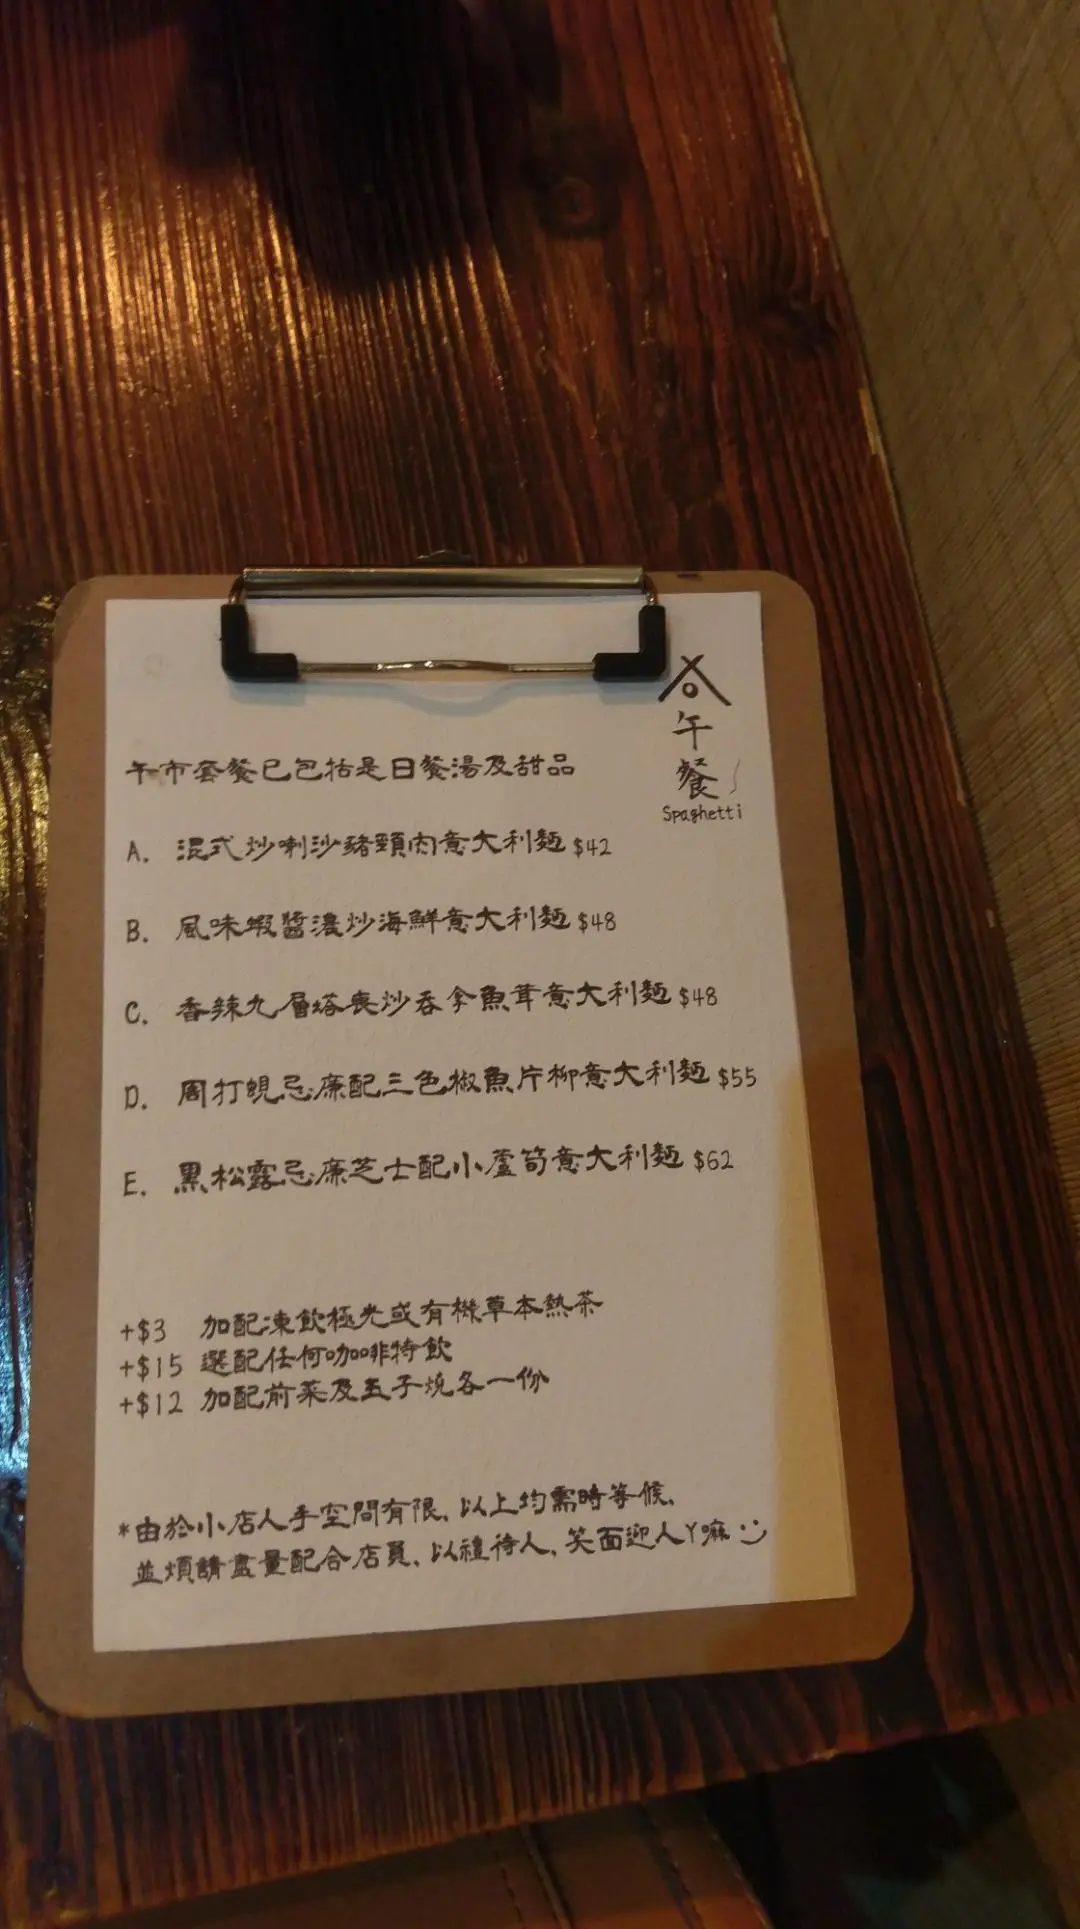 午餐
Spaghetti
午市套餐已包括是日餐湯及甜品
A. 混式炒喇沙豬頸肉意大利麵 $42
B. 風味蝦醬濃炒海鮮意大利麵 $48
C. 香辣九層塔喪炒吞拿魚茸意大利麵 $48
D. 周打蜆忌廉配三色椒魚片柳意大利麵 $55
E. 黑松露忌廉芝士配小蘆筍意大利麵 $62
+$3 加配凍飲極光或有機草本熱茶
+$15 選配任何咖啡特飲
+$12 加配前菜及玉子燒各一份
*由於小店人手空間有限、以上均需時等候、
並煩請盡量配合店員、以禮待人、笑面迎人丫嘛 :)